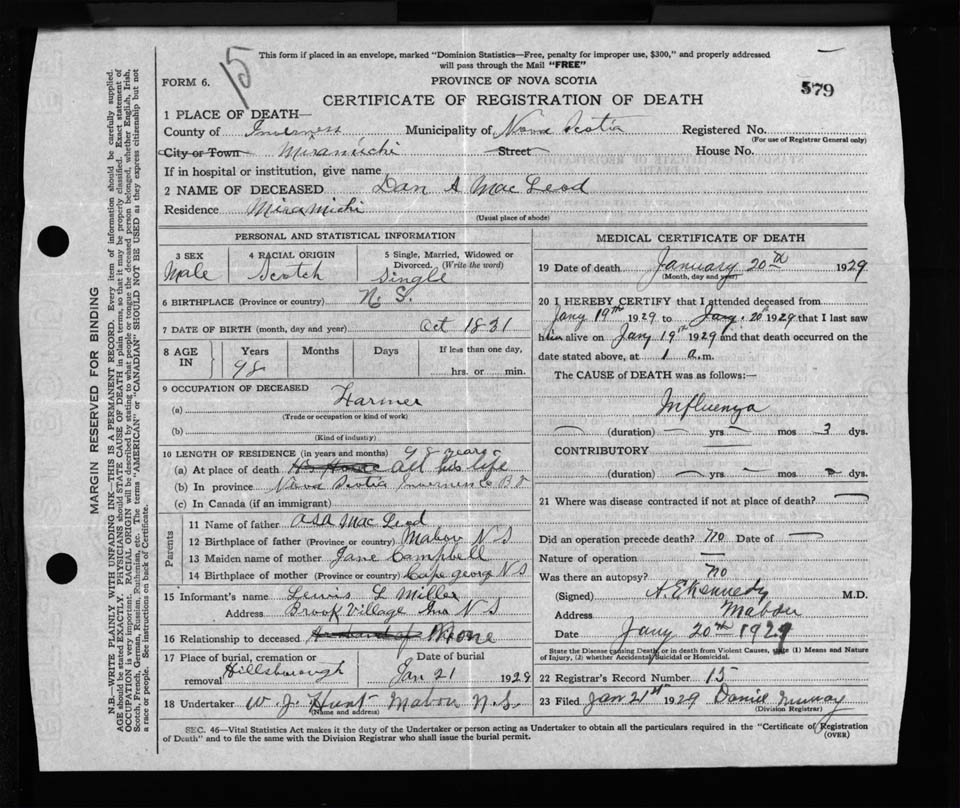 This form if placed in an envelope, marked "Dominion Statistics—Free, penalty for improper use, $300," and properly addressed
will pass through the Mail "FREE"
15
FORM 6.
PROVINCE OF NOVA SCOTIA
579
CERTIFICATE OF REGISTRATION OF DEATH
1 PLACE OF DEATH—
County of Inverness Municipality of Nova Scotia Registered No.
(For use of Registrar General only)
City or Town Miramichi Street House No.
If in hospital or institution, give name
2 NAME OF DECEASED Dan A MacLeod
Residence Miramichi
(Usual place of abode)
PERSONAL AND STATISTICAL INFORMATION
3 SEX
Male
4 RACIAL ORIGIN
Scotch
5 Single, Married, Widowed or
Divorced. (Write the word)
Single
6 BIRTHPLACE (Province or country) N S.
7 DATE OF BIRTH (month, day and year) Oct 1831
8 AGE
IN
Years
98
Months
Days
If less than one day,
hrs. or min.
9 OCCUPATION OF DECEASED
(a) Farmer
(Trade or occupation or kind of work)
(b)
(Kind of industry)
10 LENGTH OF RESIDENCE (in years and months) 98 years
(a) At place of death All his life
(b) In province Nova Scotia Inverness Co
(c) In Canada (if an immigrant)
Parents
11 Name of father Asa MacLeod
12 Birthplace of father (Province or country) Mabou N S
13 Maiden name of mother Jane Campbell
14 Birthplace of mother (Province or country) Cape George N S
15 Informant's name Lewis L Miller
Address Brook Village Inv N S
16 Relationship to deceased None
17 Place of burial, cremation or
removal Hillsborough
Date of burial
Jan 21 1929
18 Undertaker W. J. Hunt Mabou N.S.
(Name and address)
MEDICAL CERTIFICATE OF DEATH
19 Date of death January 20th 1929
(Month, day and year)
20 I HEREBY CERTIFY that I attended deceased from
Jany 19th 1929 to Jany. 20th 1929 that I last saw
him alive on Jany 19th 1929 and that death occurred on the
date stated above, at 1 a.m.
The CAUSE of DEATH was as follows:—
Influenza
(duration) yrs. mos 3 dys.
CONTRIBUTORY
(duration) yrs. mos dys.
21 Where was disease contracted if not at place of death?
Did an operation precede death? No Date of
Nature of operation
Was there an autopsy? no
(Signed) A. E. Kennedy M.D.
Address Mabou
Date Jany 20th 1929
State the Disease causing Death, or in death from Violent Causes, state (1) Means and Nature
of Injury, (2) whether Accidental, Suicidal or Homicidal.
22 Registrar's Record Number 15
23 Filed Jan 21st 1929 Daniel Murray
(Division Registrar)
SEC. 46—Vital Statistics Act makes it the duty of the Undertaker or person acting as Undertaker to obtain all the particulars required in the "Certificate of Registration
of Death" and to file the same with the Division Registrar who shall issue the burial permit.
(OVER)
MARGIN RESERVED FOR BINDING
N.B.—WRITE PLAINLY WITH UNFADING INK—THIS IS A PERMANENT RECORD. Every item of information should be carefully supplied.
AGE should be stated EXACTLY. PHYSICIANS should STATE CAUSE OF DEATH in plain terms, so that it may be properly classified. Exact statement of
OCCUPATION is very important. RACIAL ORIGIN will be described by stating to what people or tongue the deceased person belonged, whether English, Irish,
Scotch, French, German, Russian, Ruthenian, etc. The terms "AMERICAN" or "CANADIAN" SHOULD NOT BE USED as they express citizenship but not
a race or people. See instructions on back of Certificate.